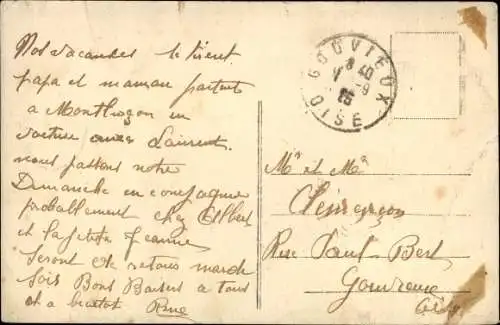 Nos vacances se tirent
papa et maman partent
a Montluçon en
voiture avec Laurent.
nous passons notre
Dimanche en compagnie
probablement chez Albert
et la petite Jeanne
seront de retour mardi
soir Bons Baisers a tous
et a bientot Rene
GOUVIEUX
8 40
OISE
Mr et Me
Rue Paul Bert
Gouvieux
Oise